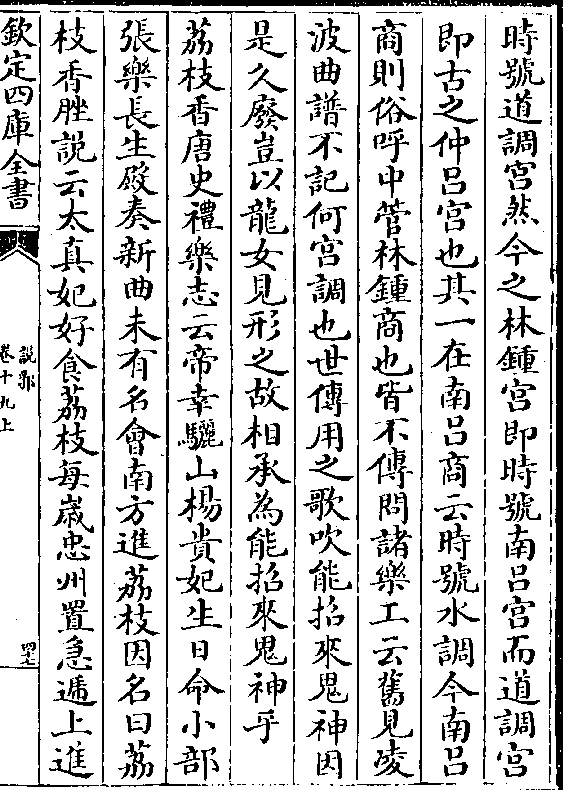 時號道調宮然今之林鍾宮即時號南呂宮而道調宮
即古之仲呂宮也其一在南呂商云時號水調今南呂
商則俗呼中管林鍾商也皆不傳問諸樂工云舊見凌
波曲譜不記何宮調也世傳用之歌吹能招來鬼神因
是久廢豈以龍女見形之故相承為能招來鬼神乎
荔枝香唐史禮樂志云帝幸驪山楊貴妃生日命小部
張樂長生殿奏新曲未有名會南方進荔枝因名曰荔
枝香脞說云太真妃好食荔枝每歲忠州置急遞上進
欽定四庫全書
說郛
卷十九上
四十七